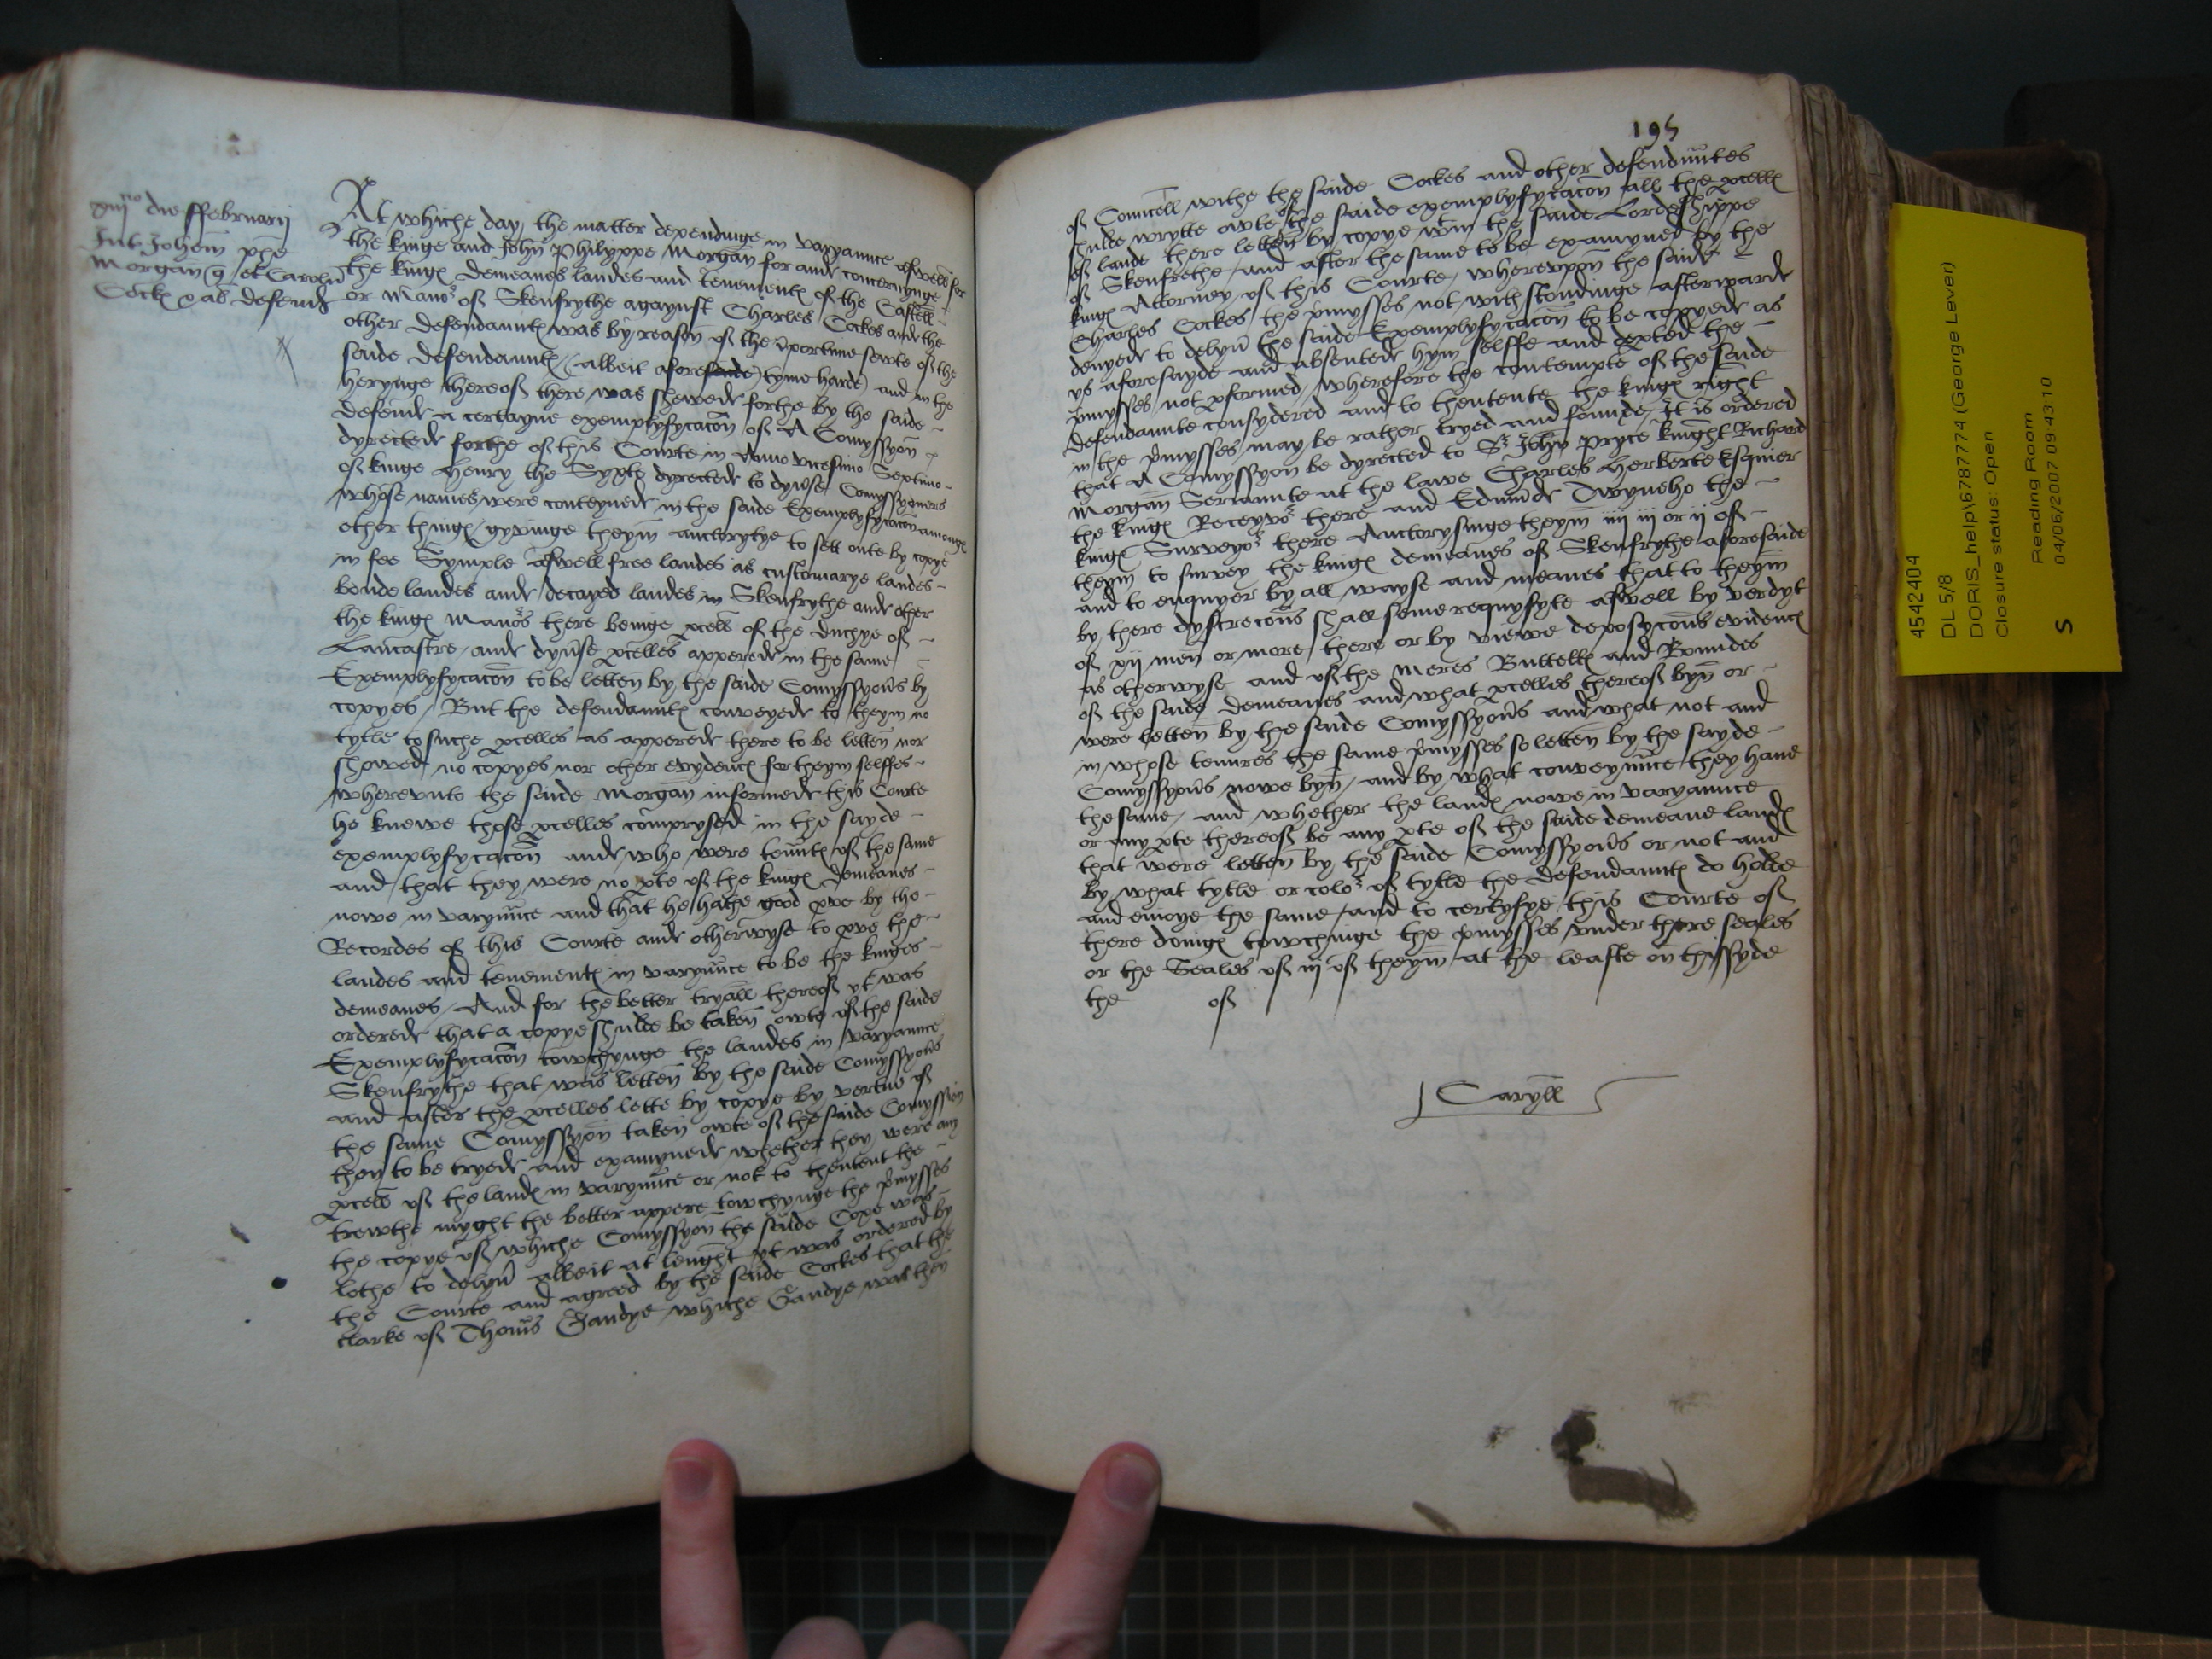 xiij no die ffebruarij
Int Joh̃em phe
Morgan q̃ et Carolũ
Cock & al defend
At whiche day the matter dependinge in varyannce aswell for
the kinge and John Philyppe Morgan for and concernynge
the king demeanes landes and tenement of the Castell
or Mano r of Skenfrythe agaynst Charles Cockes and the
other defendaunt was by reason of the iportune sewte of the
saide defendaunt (albeit afore tyme harde) and in the
herynge thereof there was shewede forthe by the saide
defend a certayne exemplyfycacõn of A Comyssyon
dyrectede forthe of this Courte in Anno vicesimo Septimo
of kinge Henry the Syxth dyrectede to dyv̉se Comyssyoners
whose names were conteynede in the saide Exemplyfycacõn amonge
other thing gyvinge theym auctorytye to sett oute by copye
in fee Symple aswell free landes as customarye landes
bonde landes ande decayed landes in Skenfrythe ande other
the king mano rs there beinge pcell of the duchye of
Lancastre ande dyv̉se pcelles apperede in the same
Exemplyfycacõn to be letten by the saide Comyssyoñs by
copyes / But the defendaunt conveyede to theym no
tytle to suche pcelles as apperede there to be letten nor
showed no copyes nor other evydenc for theym selffes
wherevnto the saide Morgan informede this Courte
he knewe those pcelles comprysed in the sayde
exemplyfycacõn ande who were teñnt of the same
and that they were no pte of the king demeanes
nowe in varyũnce and that he hathe good pve by the
Recordes of this Courte ande otherwyse to pve the
landes and tenement in varyũnce to be the kinges
demeanes / And for the better tryall thereof yt was
orderede that a copye shulde be taken owte of the saide
Exemplyfycacõn towchynge the landes in varyannce
Skenfrythe that was letten by the saide Comyssyoñs
and after the pcelles lette by copye by vertue of
the same Comyssyon taken owte of the saide Comyssyon
then to be tryede and examynede whether they were any
pcell of the land in varyũnce or not to thentent the
trewthe myght the better appere towchynge the pmysses
the copye of whiche Comyssyon the saide Coxe was
lothe to delyv̉ albeit at lenght yt was ordered by
the Courte and agreed by the saide Cockes that the
clarke of Thom̃s Gandye whiche Gandye was then
195
of Councell withe the saide Cockes and other defendũntes
shulde wrytte owte of the saide exemplyfycacõn all the pcell
of lande there letten by copye wtin the saide Lordeshippe
of Skenfrethe and after the same to be examyned by the
king Attorney of this Courte / wherevppon the saide
Charles Cockes the pmysses not withstondinge afterwarde
denyede to delyv̉ the saide Exemplyfycacõn to be copyede as
ys aforesayde and absentede hym selffe and depted the
pmysses not pformed / wherefore the contempte of the saide
defendannte consydered and to thentente the king right
in the pmysses may be rather tryed and founde / It is ordered
that A Comyssyon be dyrected to Sr John pryce knight Richard
Morgan Seriannte at the lawe Charles Herberte Esquier
the king Receyvo r there and Edmūde Twyneho the
king Surveyo r there Auctorysinge theym iiij iij or ij of
theym to survey the king demeanes of Skenfrythe aforesaide
and to enquyer by all wayse and meanes that to theym
by there dyscrecoñs shall seme requysyte aswell by verdyt
of xij men or more there or by viewe deposycoñs evidenc
as otherwyse and of the meres Buttell and Boundes
of the saide demeanes and what pcelles thereof byn or
were letten by the saide Comyssyoñs and what not and
in whose tenures the same pmysses so letten by the sayde
Comyssyoñs nowe byn / and by what conveyũnce they have
the same / and whether the land nowe in varyannce
or any pte thereof be any pte of the saide demeane land
that were letten by the saide Comyssyoñs or not and
By what tytle or colo r of tytle the defendaunt do holde
and enioye the same / and to certyfye this Courte of
there doing towchinge the pmysses vnder there seales
or the Seales of iij of theym at the leaste on thissyde
the of
Caryll
4542404
DL 5/8
DORIS_help\6787774 (George Lever)
Closure status: Open
Reading Room
S 04/06/2007 09 43 10